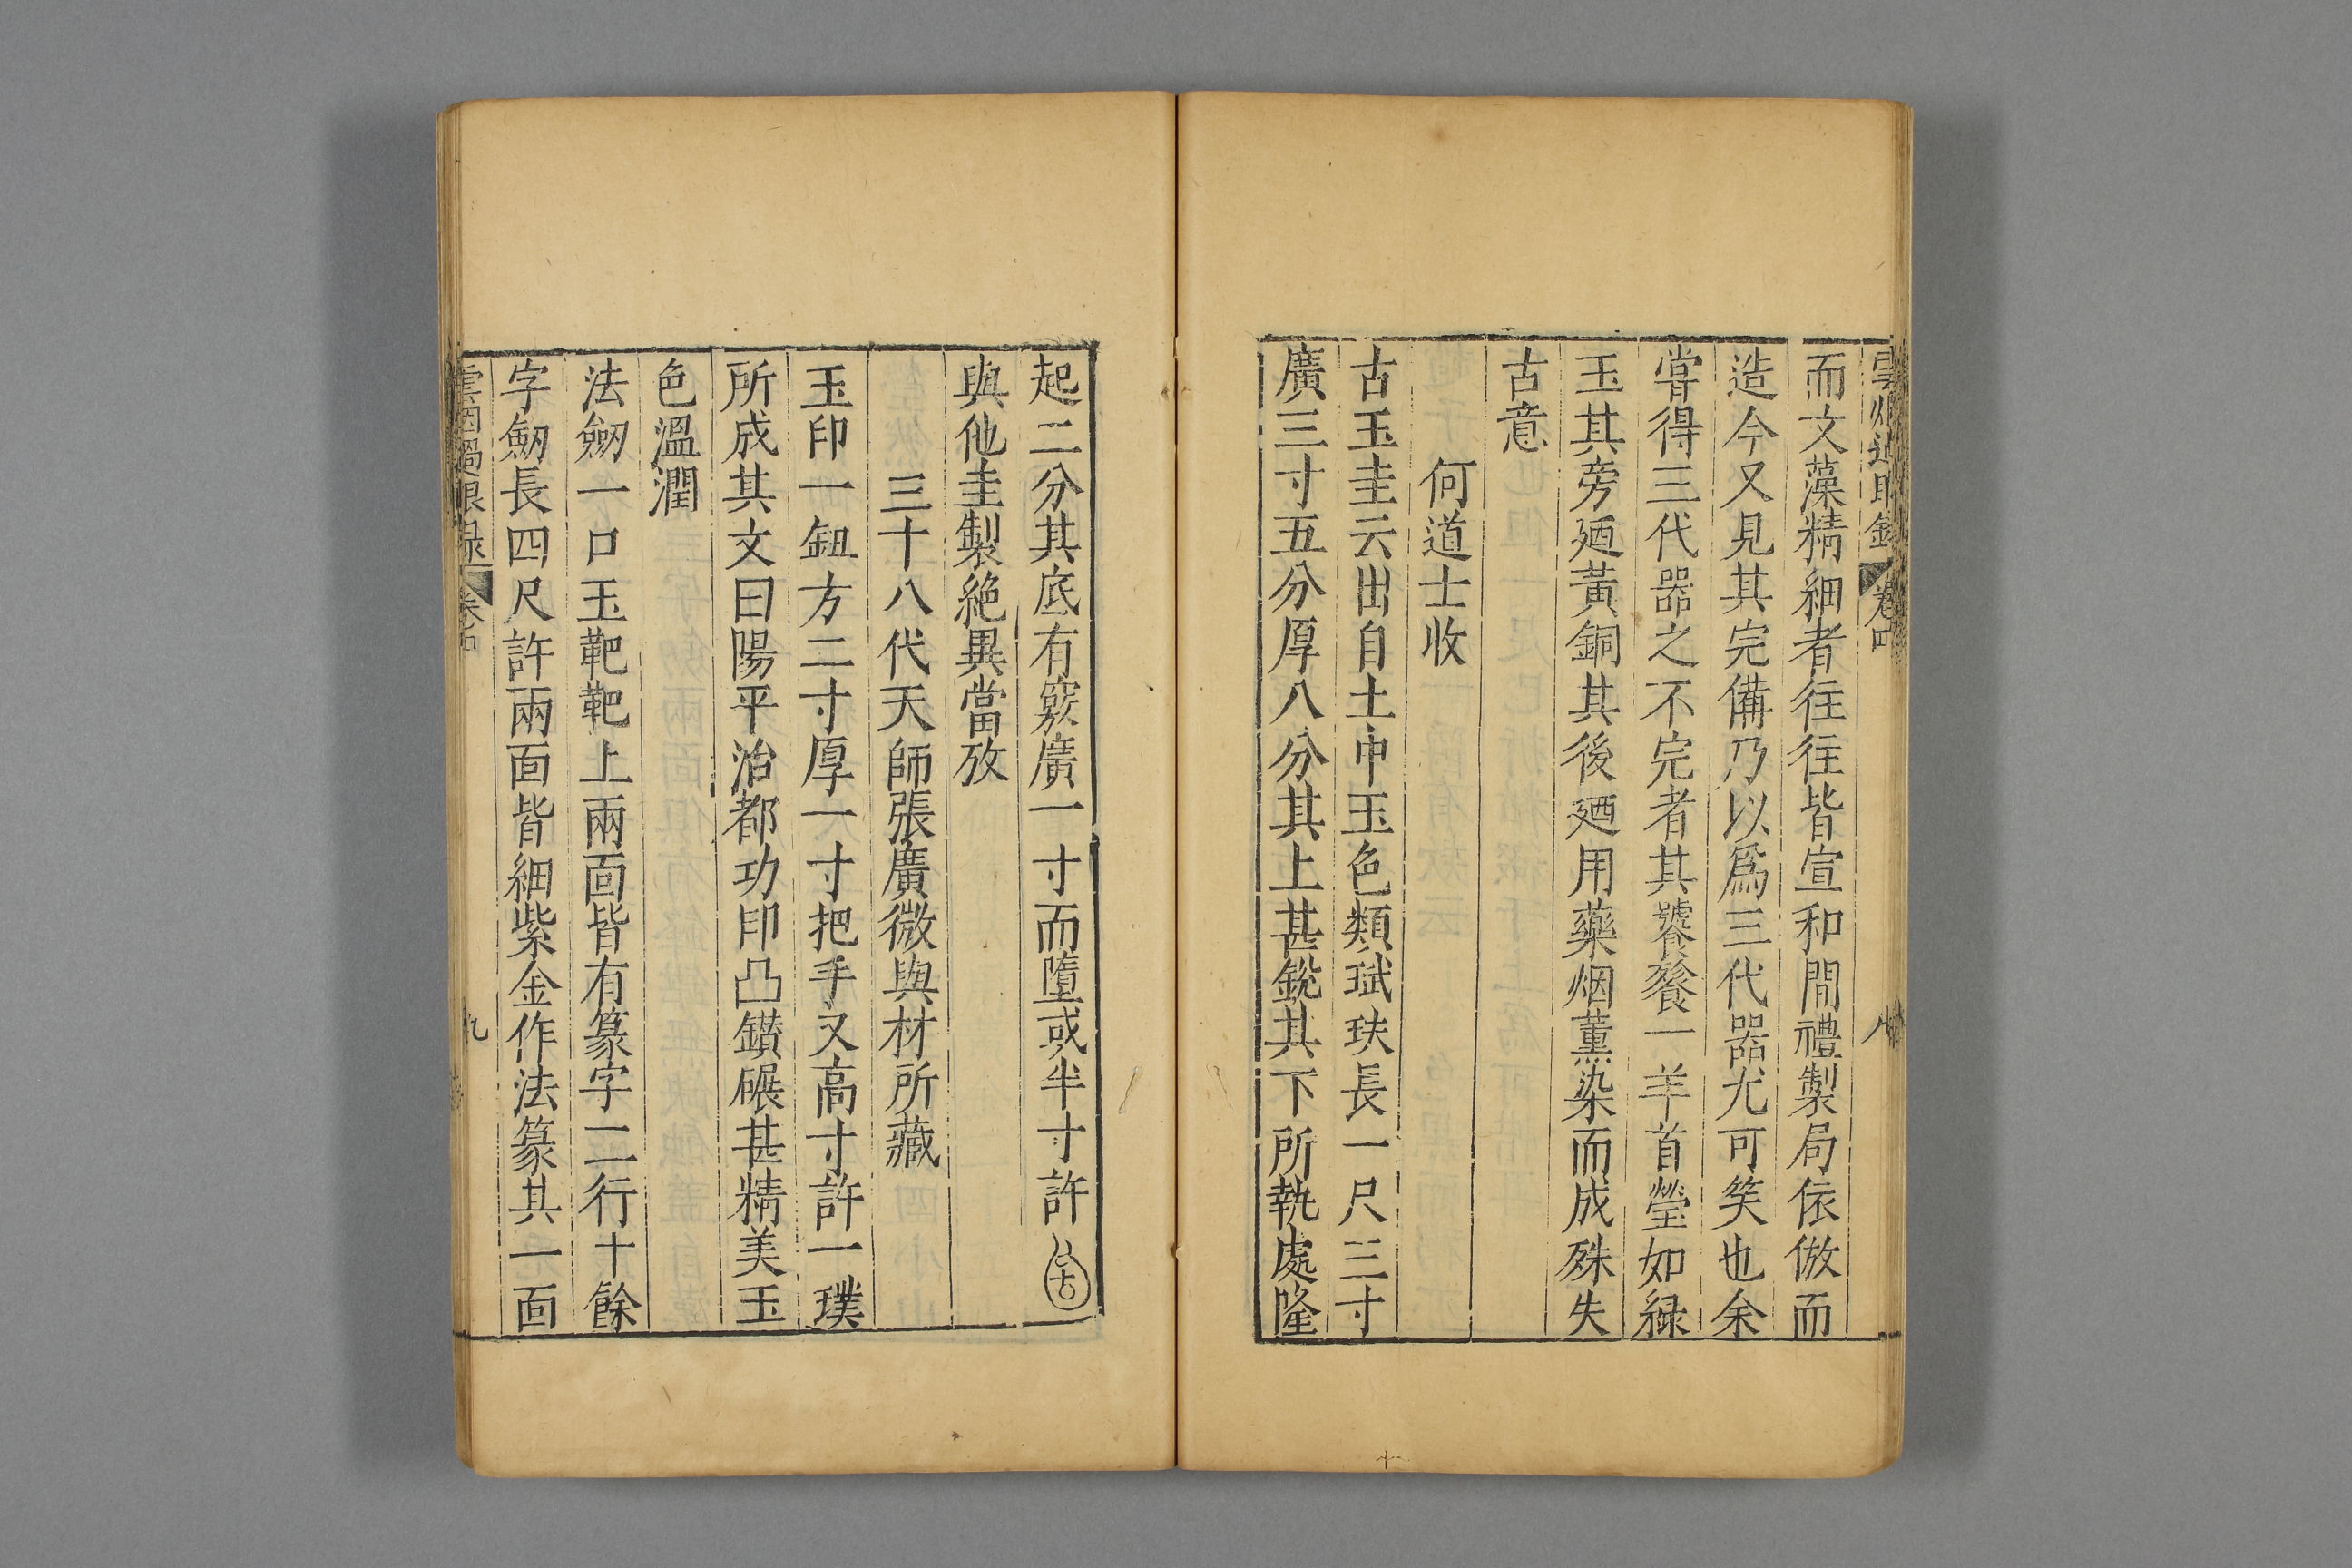 雲烟過眼錄 卷四 八
而文藻精細者往往皆宣和間禮製局依倣而
造今又見其完備乃以爲三代器尤可笑也余
嘗得三代器之不完者其饕餮一羊首瑩如綠
玉其旁廼黃銅其後廼用藥烟薰染而成殊失
古意
何道士收
古玉圭云出自土中玉色類珷玞長一尺三寸
廣三寸五分厚八分其上甚銳其下所執處隆
起二分其底有竅廣一寸而墮或半寸許
與他圭製絶異當攷
三十八代天師張廣微與材所藏
玉印一鈕方二寸厚一寸把手又高寸許一璞
所成其文曰陽平治都功印凸鐟碾甚精美玉
色溫潤
法劒一口玉靶靶上兩面皆有篆字二行十餘
字劒長四尺許兩面皆細紫金作法篆其一面
雲烟過眼録 卷四 九